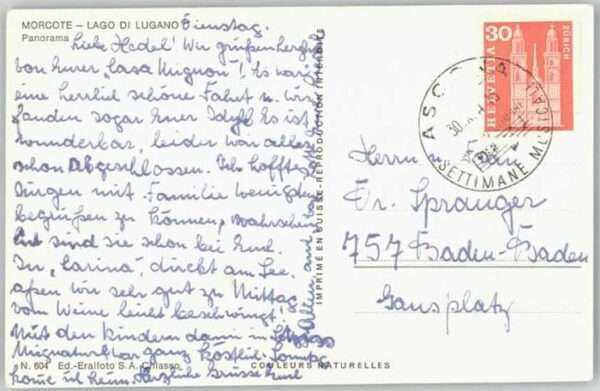 MORCOTE – LAGO DI LUGANO
Panorama
Dienstag.
Liebe Hedel! Wir grüßen herzlich
von Eurer "Casa Mignon"! Es war
eine herrlich schöne Fahrt u. wir
fanden sogar Euer Idyll. Es ist
wunderbar, leider war alles
schon abgeschlossen. Ich hoffte
Jürgen mit Familie wenigstens
begrüßen zu können,
sind sie schon bei Euch.
In "Carina", direkt am See.
aßen wir sehr gut zu Mittag
vom Weine leicht beschwingt!
Mit den Kindern dann in
war ganz köstlich.
komme ich heim. Herzliche Grüsse Euch
Allen
N. 604 Ed.-Eralfoto S.A. Chiasso
COULEURS NATURELLES
IMPRIMÉ EN SUISSE - REPRODUCTION INTERDITE
HELVETIA
30
ZÜRICH
ASCONA
SETTIMANE MUSICALI
Herrn Frau
Dr. Spranger
757 Baden-Baden
Gausplatz